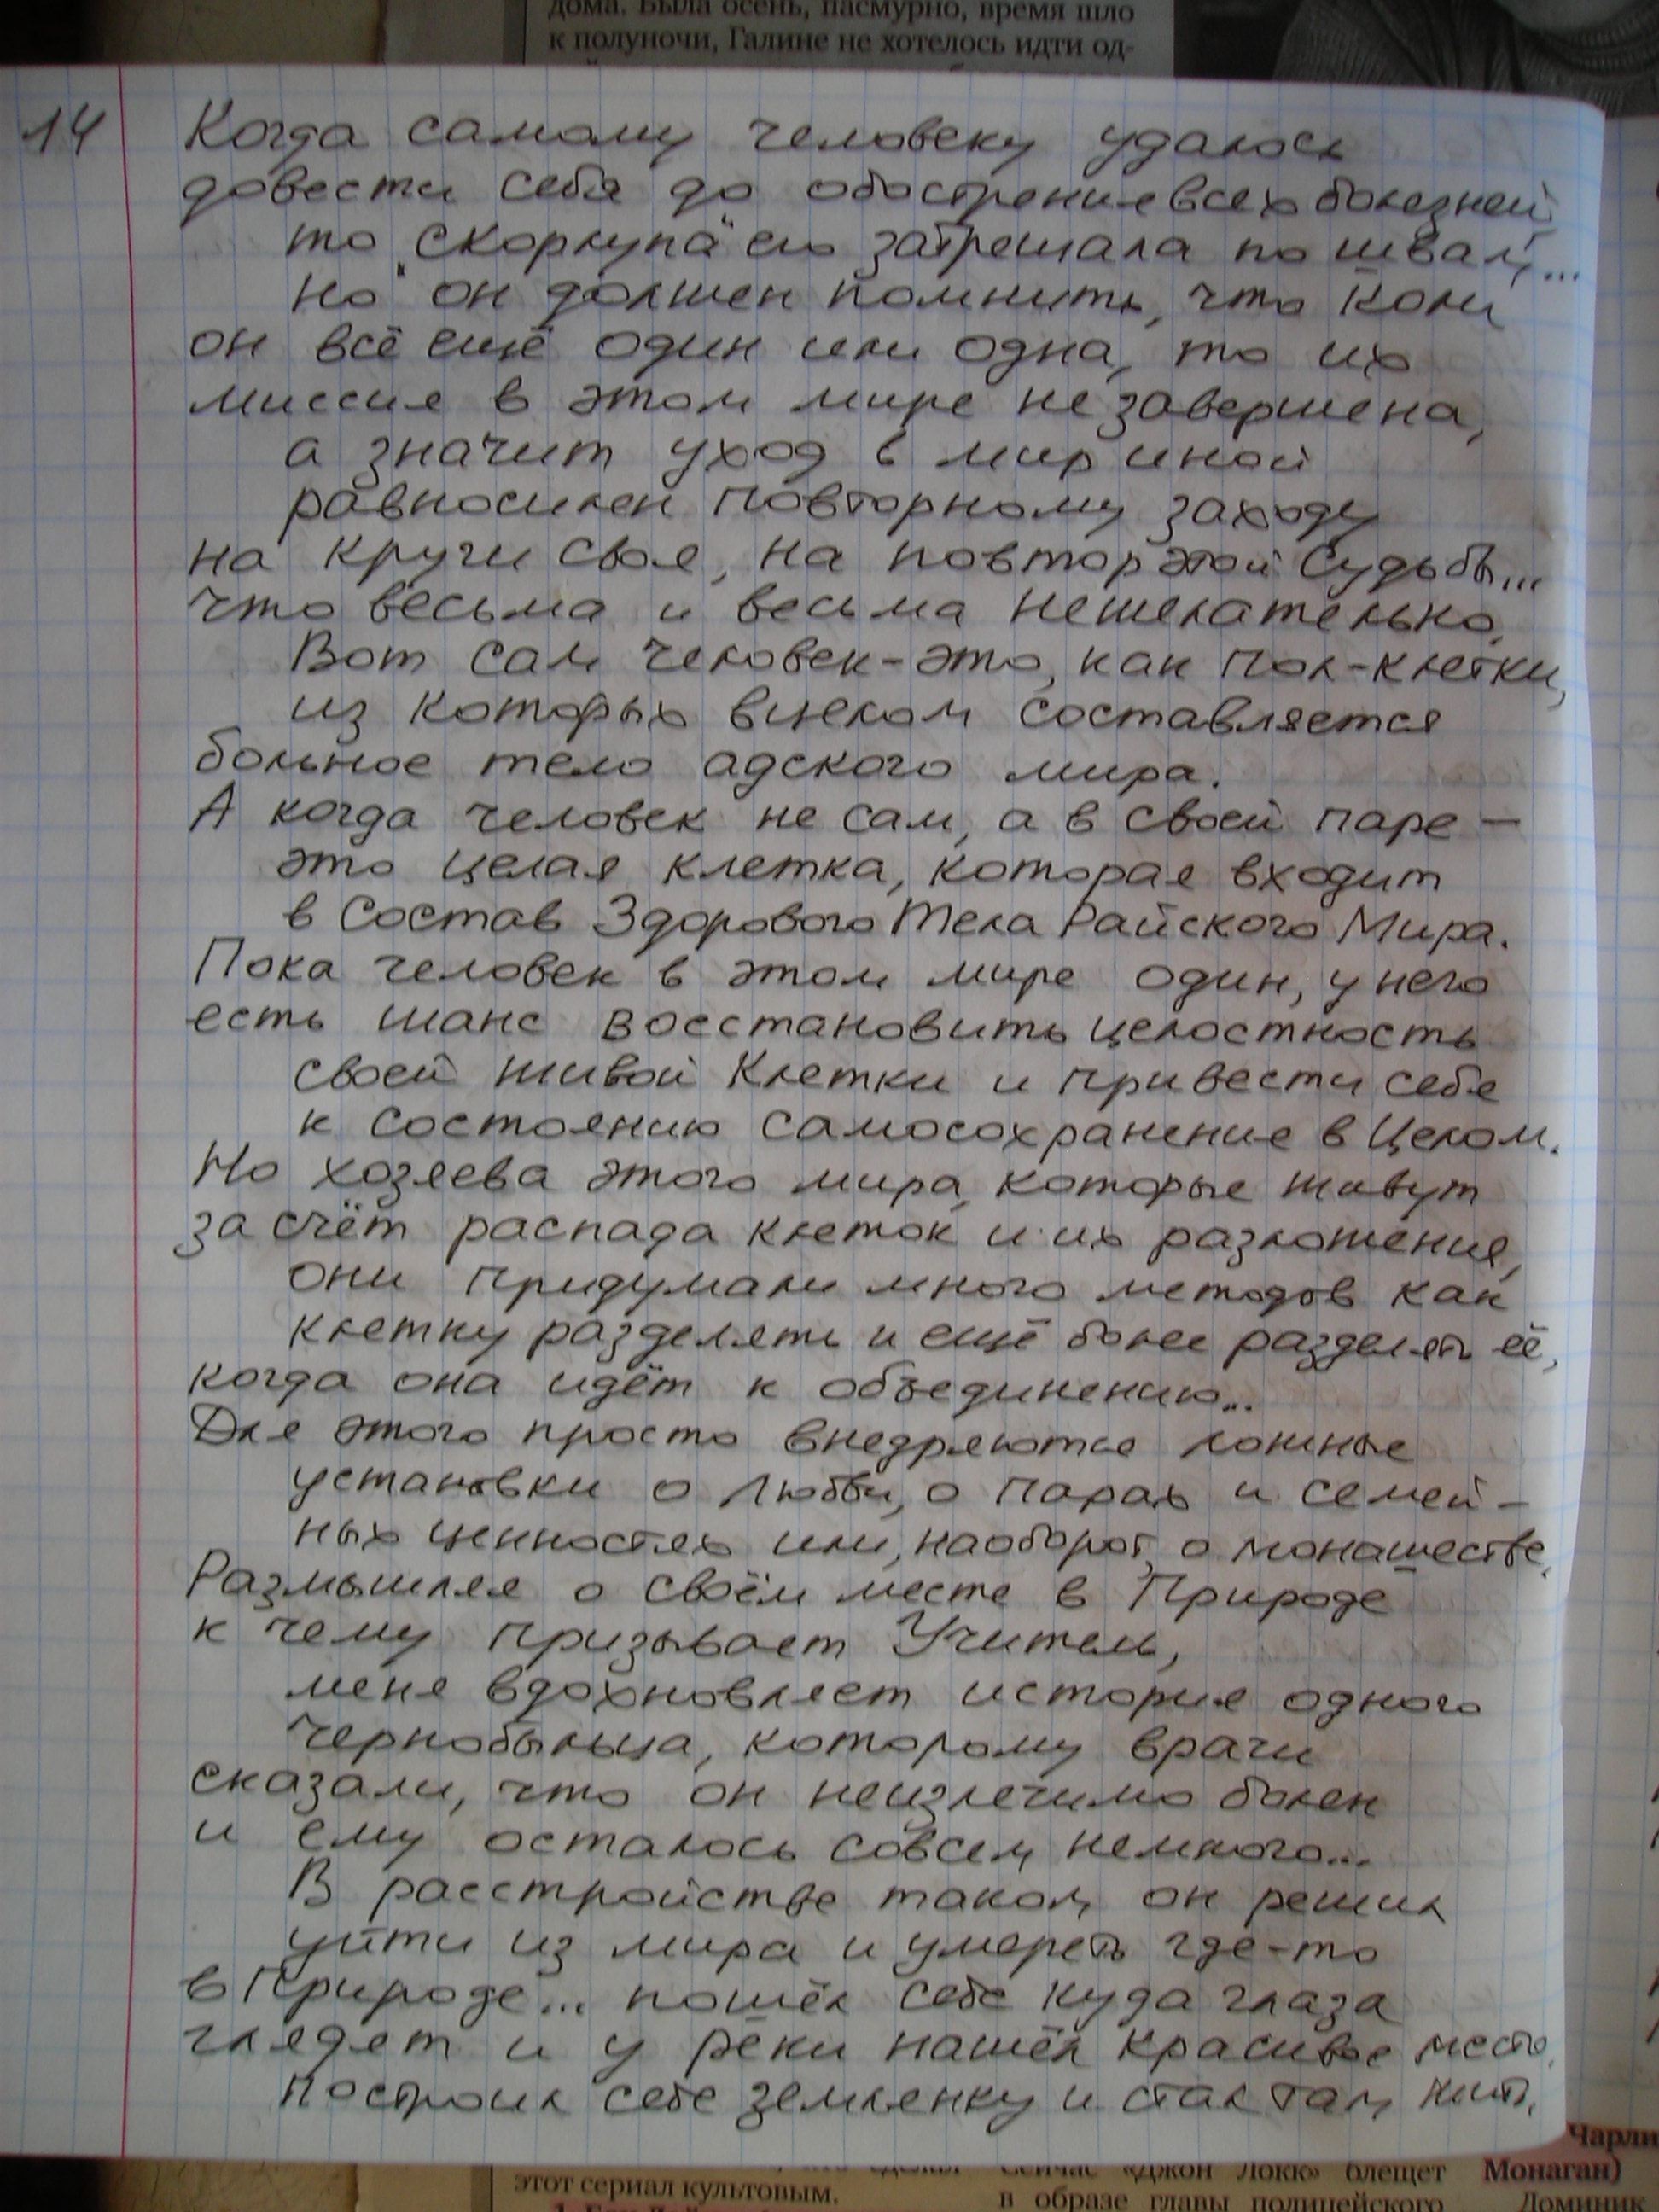 дома. Была осень, пасмурно, время шло
к полуночи, Галине не хотелось идти од-
14
Когда самому человеку удалось
довести себя до обострения всех болезней
то "скорлупа" его затрещала по швам...
но он должен помнить, что коли
он всё ещё один или одна, то их
миссия в этом мире не завершена,
а значит уход в мир иной
равносилен повторному заходу
на круги своя, на повтор этой Судьбы...
что весьма и весьма нежелательно.
Вот сам человек - это, как пол-клетки,
из которых вцелом составляется
больное тело адского мира.
А когда человек не сам, а в своей паре -
это целая клетка, которая входит
в состав Здорового Тела Райского Мира.
Пока человек в этом мире один, у него
есть шанс восстановить целостность
своей живой Клетки и привести себя
к состоянию самосохранения в Целом.
Но хозяева этого мира, которые живут
за счёт распада клеток и их разложения,
они придумали много методов как
клетку разделять и ещё более разделять её,
когда она идёт к объединению...
Для этого просто внедряются ложные
установки о любви, о парах и семей-
ных ценностях или, наоборот, о монашестве.
Размышляя о своём месте в Природе
к чему призывает Учитель,
меня вдохновляет история одного
чернобыльца, которому врачи
сказали, что он неизлечимо болен
и ему осталось совсем немного...
В расстройстве таком он решил
уйти из мира и умереть где-то
в Природе... пошёл себе куда глаза
глядят и у реки нашёл красивое место,
построил себе землянку и стал там жить.
Чарли
этот сериал культовым.
Сейчас «Джон Локк» блещет
в образе главы полицейского
Монаган)
Доминик